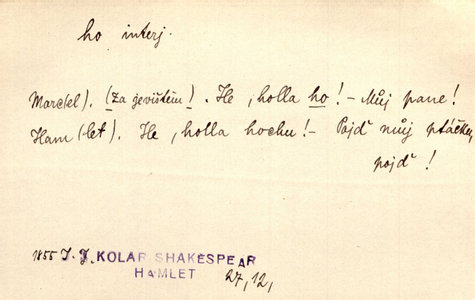 ho interj.
Marc(el). (za jevištěm). He, holla ho! – Můj pane!
Ham(let). He, holla hochu! – Pojď můj ptáčku,
pojď!
1855 J. J. KOLAR SHAKESPEAR
HAMLET 27, 12,